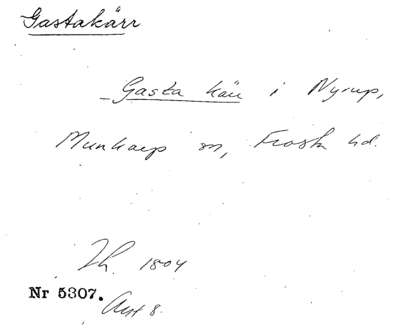 Gastakärr
Gasta käu i Nyrup,
Munkarp sn, Frosta hd.
Lh. 1804
Nr 5307.
Akt 8.